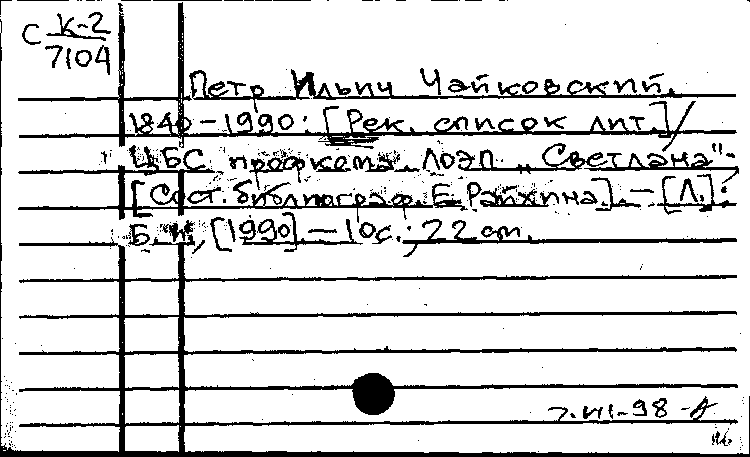 С К-2
7104
Петр Ильич Чайковский.
1840-1990: [Рек. список лит.] /
ЦБС профкома ЛОЭП „Светлана". -
[Сост. библиограф. Е. Райхина]. - [Л.]:
Б. и., [1990]. - 10с.; 22 см.
7.VII-98